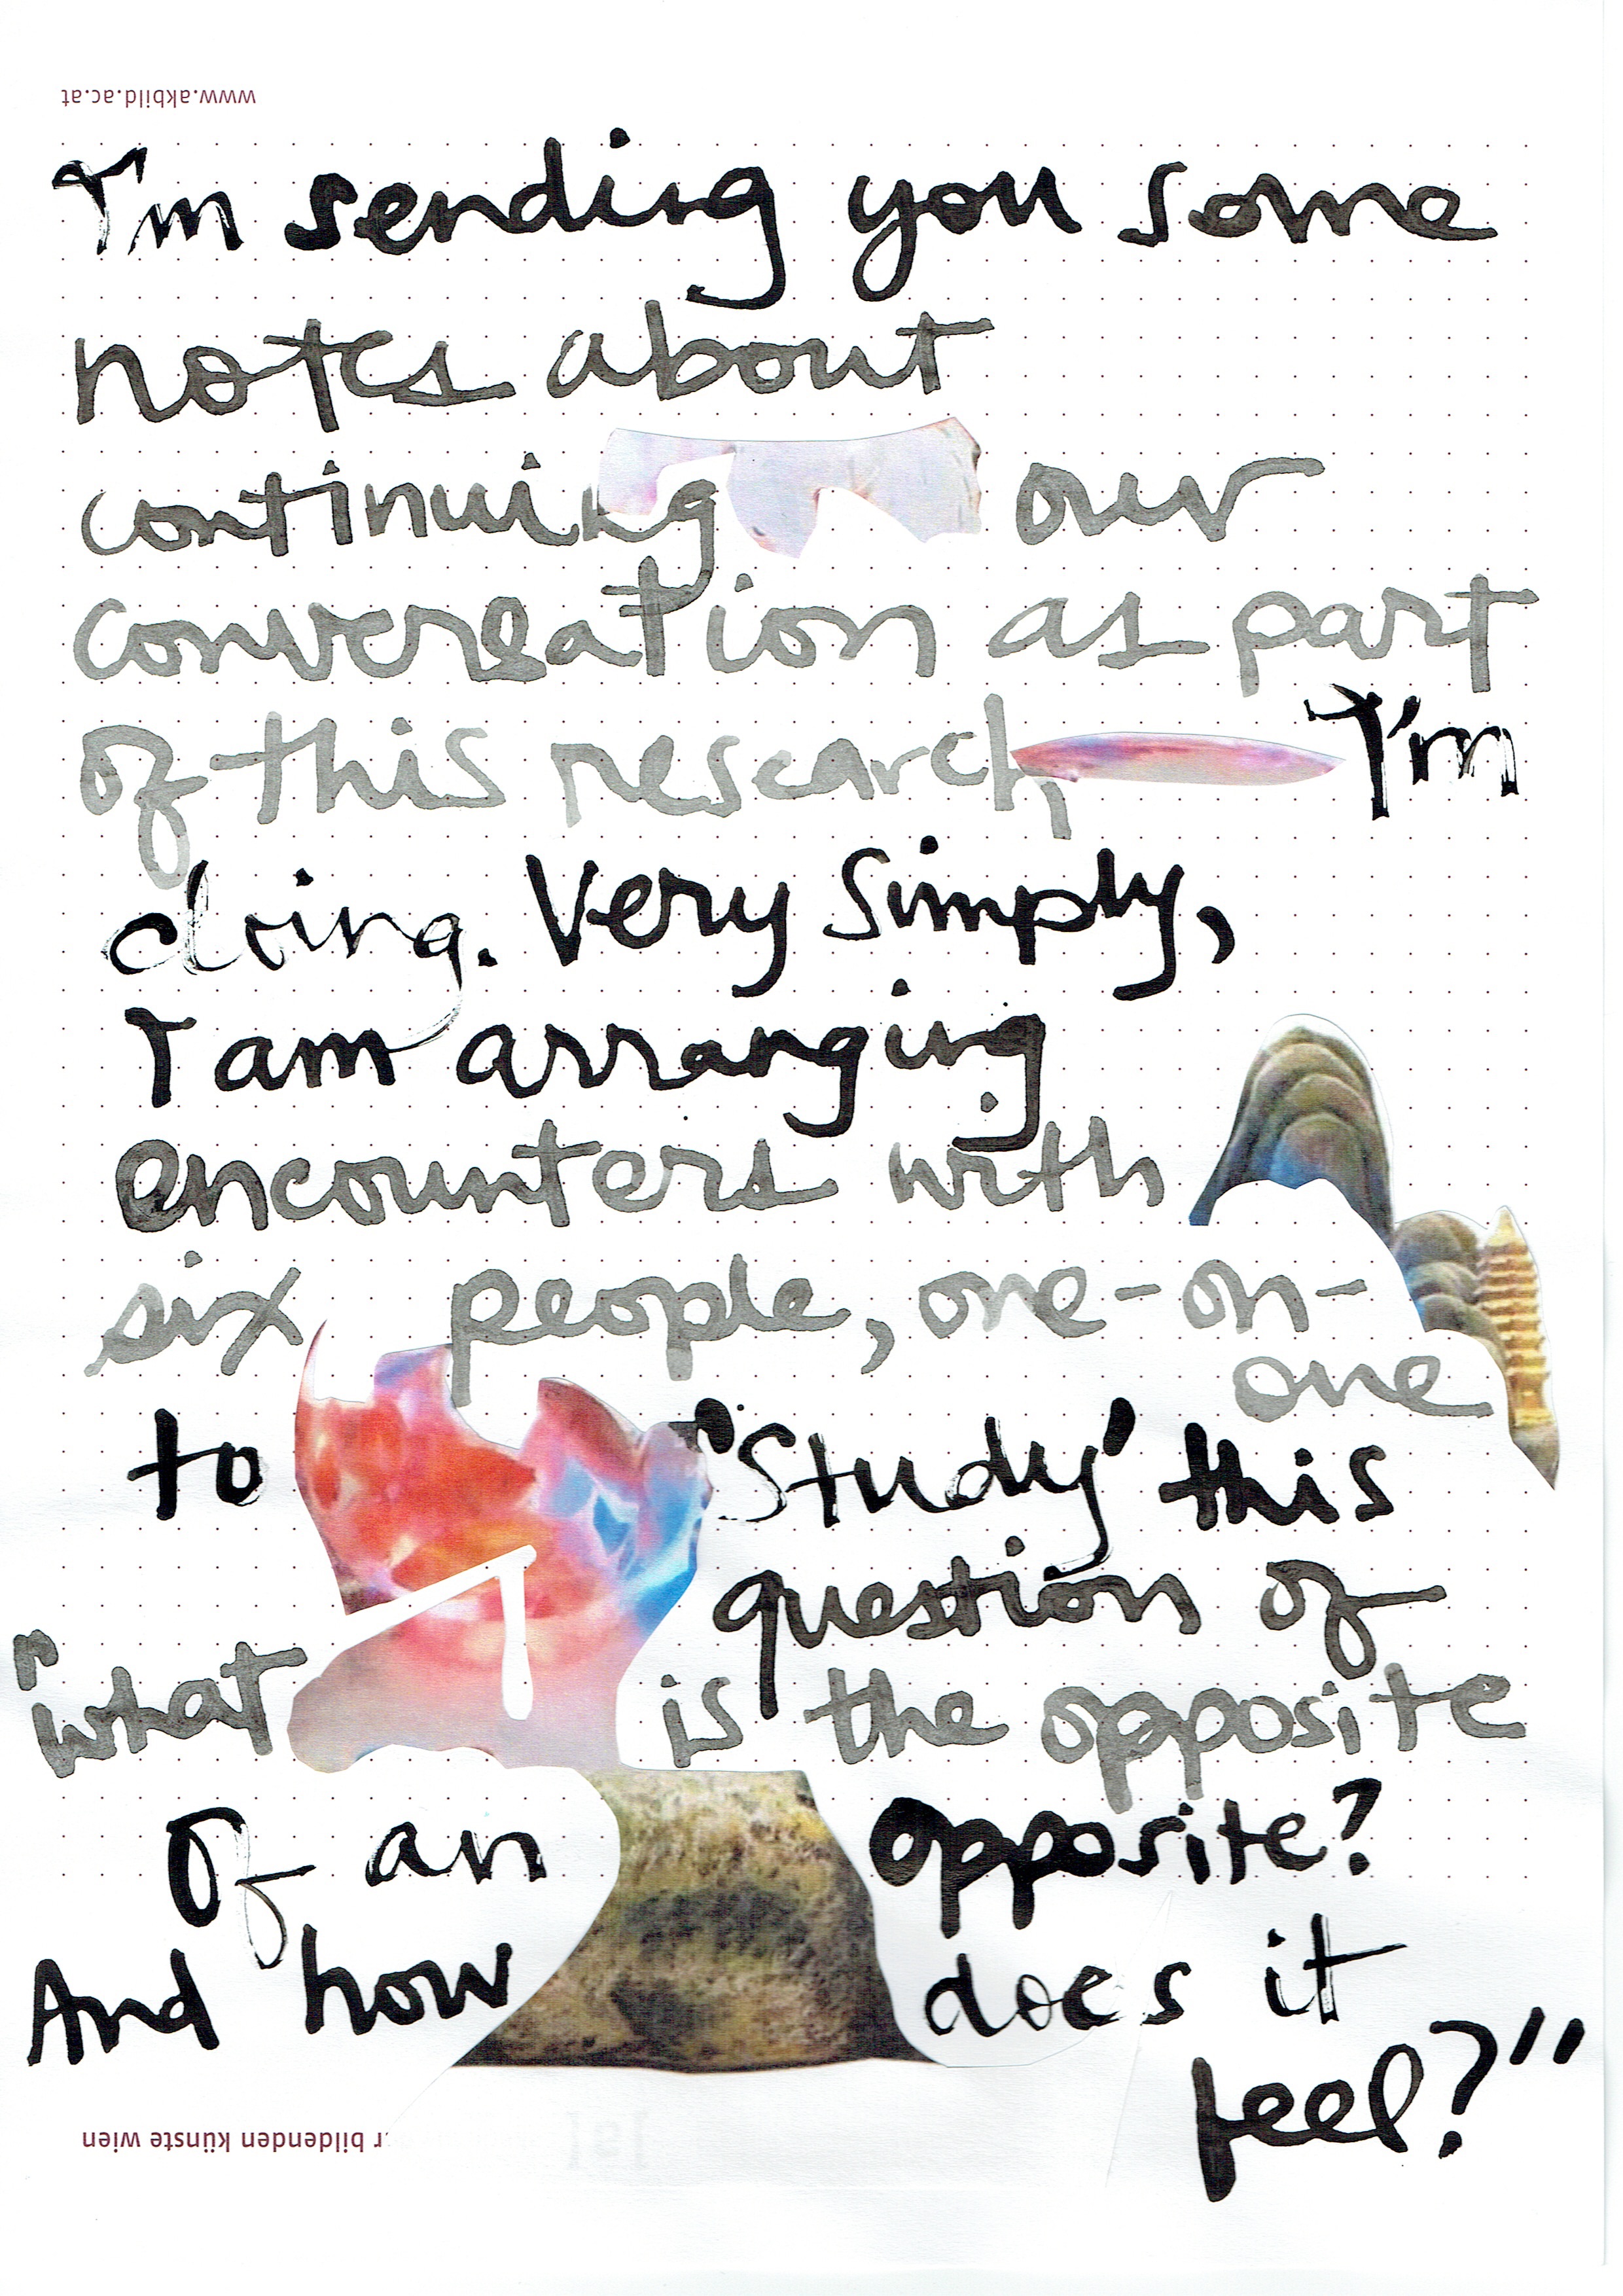 www.akbild.ac.at
I'm sending you some
notes about
continuing our
convereation as part
of this research I'm
doing. Very simply,
I am arranging
encounters with
six people, one-on-
one
to 'study' this
question of
"what is the opposite
of an opposite?
And how does it
feel?"
r bildenden künste wien